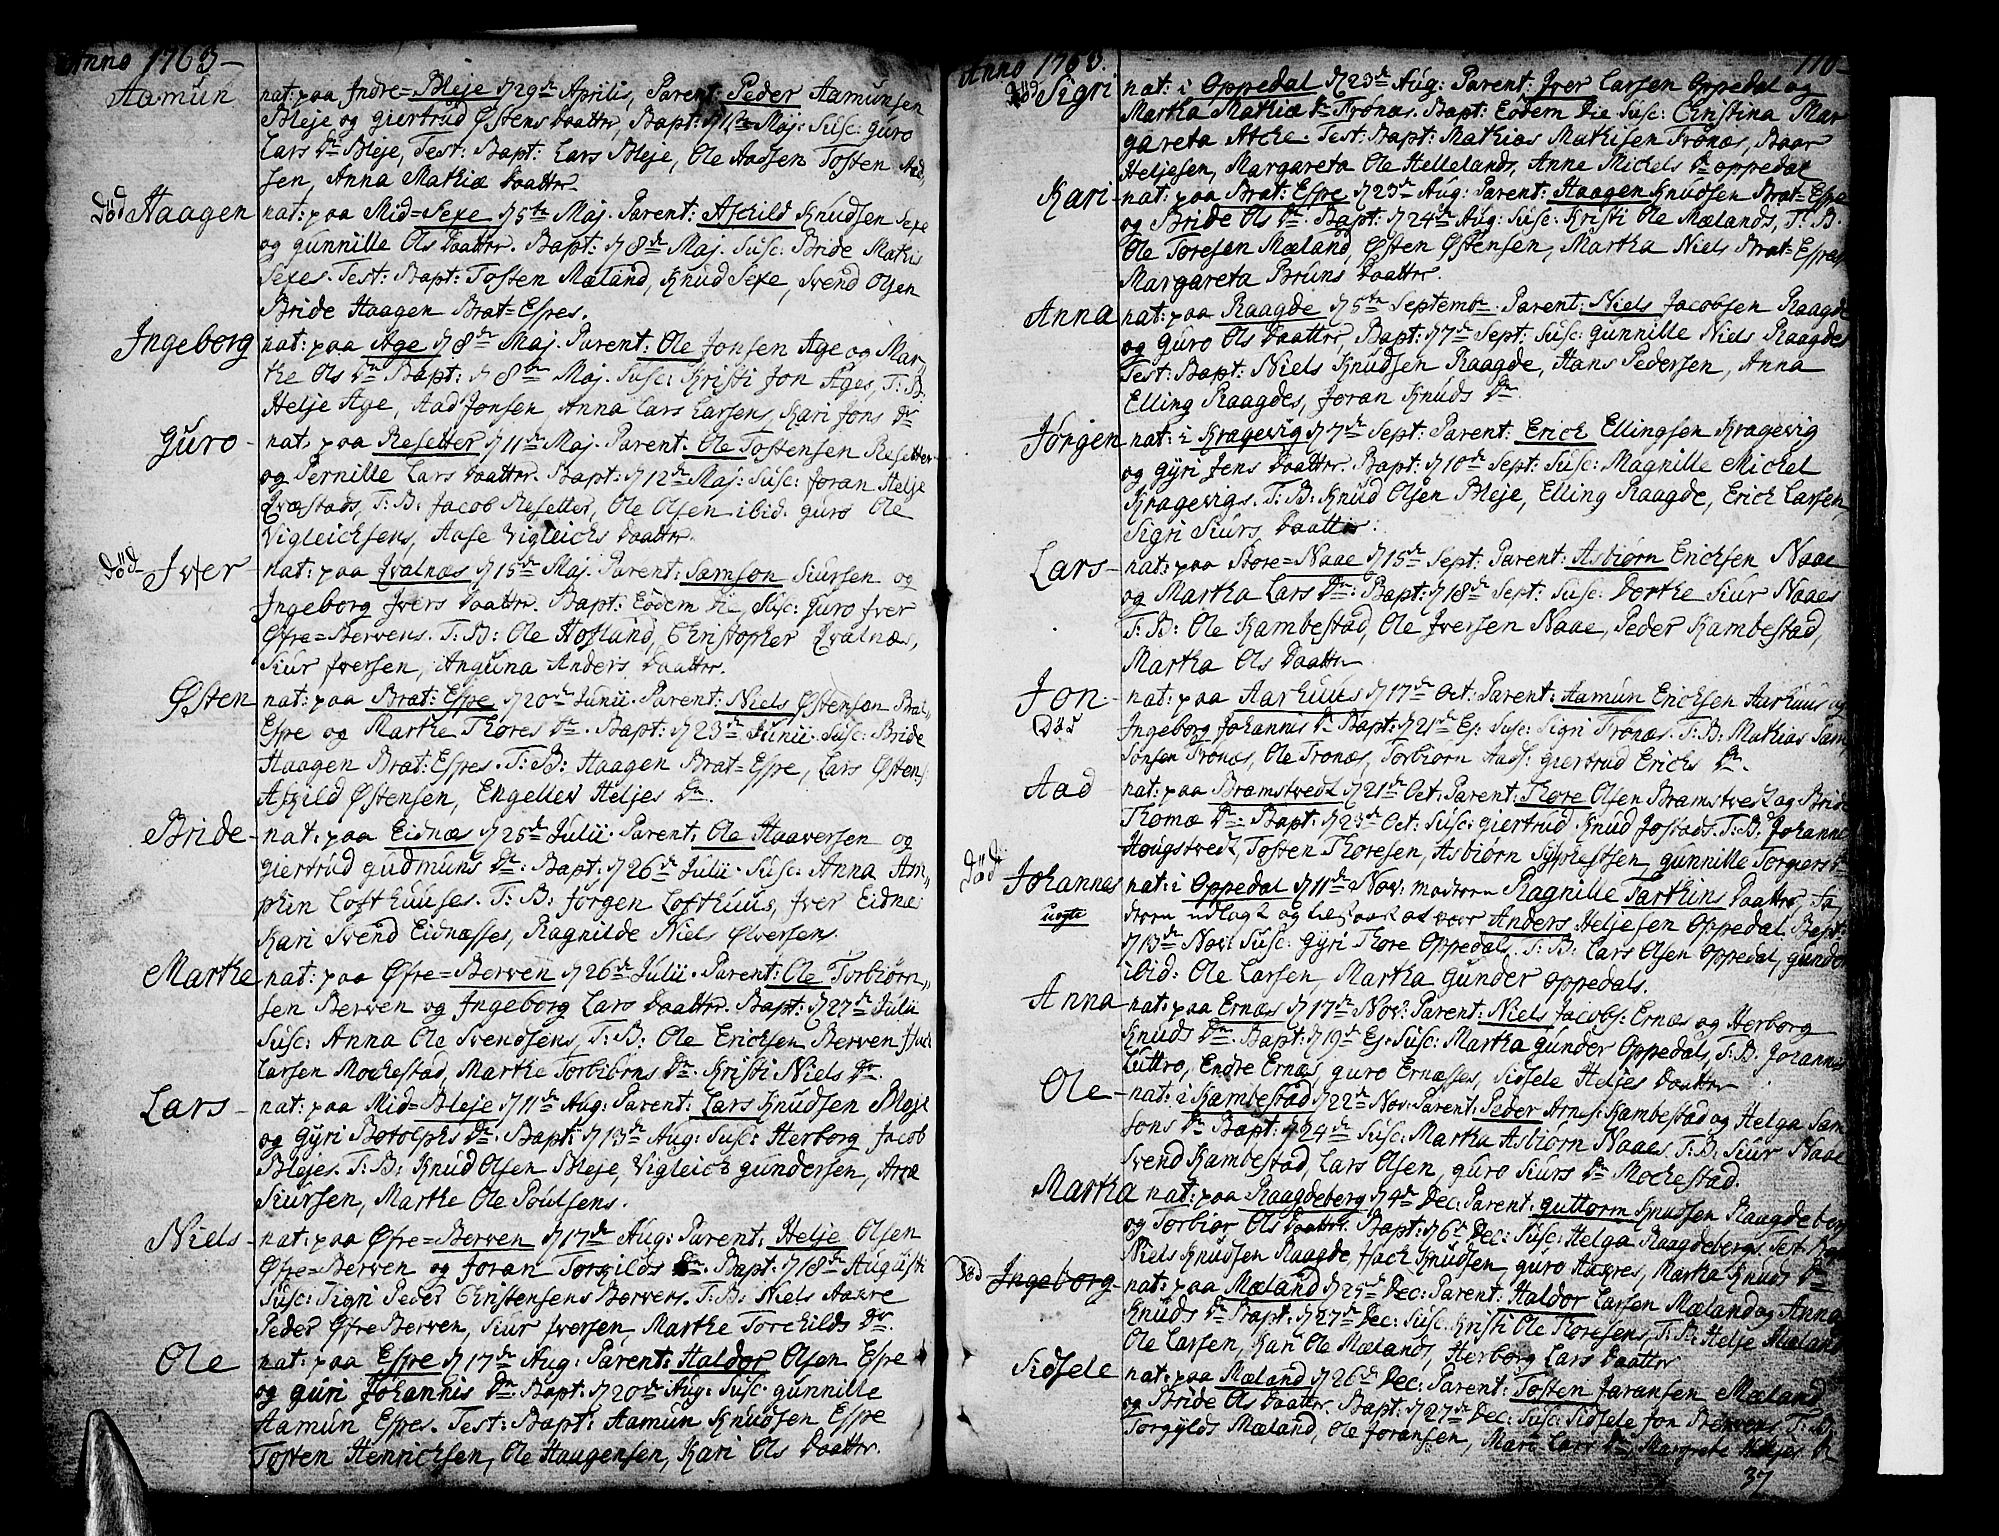 Anno 1763
Aamun nat: paa Indre=Bleje d 29de Aprilis, Parent: Peder Aamunsen
Bleje og Giertrud Østens Daatter, Bapt: d Maj: Susc: Guro
Lars Dr Bleje, Test: Bapt: Lars Bleje, Ole Aadsen Tosten
sen, Anna Mathiæ Daatter.
död Haagen nat: paa Mid=Sexe d 5te Maj. Parent: Aschild Knudsen Sexe
og Gunnille Ols Daatter. Bapt: d 8de Maj. Susc: Bride Mathis
Sexes. Test: Bapt: Tosten Mæland, Knud Sexe, Svend Olsen
Bride Haagen Brat=Espes.
Ingeborg nat: paa Age d 8de Maj. Parent: Ole Jonsen Age og Mar„
the Ols Dr Bapt: d 8de Maj. Susc: Kristi Jon Ages, T: B:
Helje Age, Aad Jonsen, Anna Lars Larsens, Kari Jons Dr
Guro nat: paa Resetter d 11de Maj. Parent: Ole Tostensen Resetter
og Pernille Lars Daatter. Bapt: d 12de Maj: Susc: Joran Helje
Qvæstads, T: B: Jacob Resetter, Ole Olsen ibid. Guro Ole
Vigleichsens, Aase Vigleichs Daatter.
död Iver nat: paa Qvalnæs d 15de Maj. Parent: Samson Siursen og
Ingeborg Ivers Daatter. Bapt: Eodem die Susc: Guro Iver
Øfre=Bervens. T: B: Ole Hofland, Christopher Qvalnæs,
Siur Iversen, Anguna Anders Daatter.
Østen nat: paa Brat: Espe d 20de Junii. Parent: Niels Østensen Brat„
Espe og Marthe Thores Dr. Bapt: d 23de Junii. Susc: Bride
Haagen Brat: Espes. T: B: Haagen Brat=Espe, Lars Østens
Askild Østensen, Engellev Heljes Dr.
Bride nat: paa Eidnæs d 25de Julii. Parent: Ole Haaversen og
Giertrud Gudmuns Dr: Bapt: d 26de Julii. Susc: Anna Am„
phin Lofthuuses. T: B: Jörgen Lofthuus, Iver Eidnæ
Kari Svend Eidnæsses, Ragnilde Niels Ølversens.
Marthe nat: paa Øfre=Berven d 26de Julii. Parent: Ole Torbiørn„
sen Berven og Ingeborg Lars Daatter. Bapt: d 27de Julii
Susc: Anna Ole Svendsens, T: B: Ole Erichsen Berven
Larsen Mochestad, Marthe Torbiörns Dr. Kristi Niels Dr.
Lars nat: paa Mid=Bleje d 11de Aug: Parent: Lars Knudsen Bleje
og Gÿri Botolphs Dr. Bapt: d 13de Aug: Susc: Herborg Jacob
Blejes. T: B: Knud Olsen Bleje, Vigleich Gundersen, Arne
Siursen, Marthe Ole Poulsens.
Niels nat: paa Øfre=Berven d 17de Aug: Parent: Helje Olsen
Øfre=Berven og Joran Torkilds Dr. Bapt: d 18de Augusti
Susc: Sigri Peder Christensens Bervens. T: B: Niels Aakre
Peder Øfre Berven, Siur Iversen, Marthe Torchilds Dr.
Ole nat: paa Espe d 17de Aug: Parent: Haldor Olsen Espe
og Guri Johannis Dr. Bapt: d 20de Aug: Susc. Gunnille
Aamun Espes. Test: Bapt: Aamun Knudsen Espe
Tosten Henrichsen, Ole Haugensen, Kari Ols Daatter.
Anno 1763. 110
död Sigri nat: i Oppedal d 23de Aug: Parent: Iver Larsen Oppedal og
Martha Mathiæ Dr Tronæs. Bapt: Eodem Die Susc: Christina Mar
gareta Atche. Test: Bapt: Mathias Mathisen Tronæs, Baar
Heljesen, Margareta Ole Hellelands, Anne Michels Dr Oppedal
Kari nat: paa Brat: Espe d 23de Aug: Parent: Haagen Knudsen Brat=Espe
og Bride Ols Dr: Bapt: d 24de Aug: Susc: Kristi Ole Mælands, T: B:
Ole Toresen Mæland, Østen Østensen, Martha Niels Brat=Espes,
Margareta Bruns Daatter.
Anna nat: paa Raagde d 5te Septembr. Parent: Niels Jacobsen Raagde
og Guro Ols Daatter, Bapt: d 7de Sept: Susc: Gunnille Niels Raagdes
Test: Bapt: Niels Knudsen Raagde, Hans Pedersen, Anna
Elling Raagdes, Joran Knuds Dr.
Jörgen nat: i Kragevig d 7de Sept: Parent: Erich Ellingsen Kragevig
og Gÿri Jens Daatter. Bapt: d 10de Sept: Susc: Magnille Michel
Kragevigs. T: B: Knud Olsen Bleje, Elling Raagde, Erich Larsen,
Sigri Siurs Daatter.
Lars nat: paa Store=Naae d 15de Sept: Parent: Asbiørn Erichsen Naae
og Martha Lars Dr: Bapt: d 18de Sept: Susc: Dorthe Siur Naaes
T: B: Ole Kambestad, Ole Iversen Naae, Peder Kambestad,
Martha Ols Daatter
Jon nat: paa Aarhuus d 17de Oct: Parent: Aamun Erichsen Aarhuus og
Död Ingeborg Johannis Dr Bapt: d 21de Ej: Susc: Sigri Tronæs. T: B: Mathias Sam
sonsen Tronæs, Ole Tronæs, Torbiörn Aads: Giertrud Erichs Dr.
Aad nat: paa Bramstvedt d 21de Oct: Parent: Thore Olsen Bramstvedt og Bride
Thomæ Dr: Bapt: d 23de Oct: Susc: Giertrud Knud Jostads. T: B: Johanne
Hougstvedt, Tosten Thoresen, Asbiörn Sÿphestsen, Gunnille Torgiers Dr
död Johannes nat: i Oppedal d 11de Nov: modren Ragnille Tarkins Daatter, Fa
uegte dren udlagt og tilstaaet at være Anders Heljesen Oppedal. Bapt:
d 13de Nov: Susc: Gÿri Thore Oppedals. T: B: Lars Olsen Oppedal, Gunder
ibid: Ole Larsen, Martha Gunder Oppedals.
Anna nat: paa Ernæs d 17de Nov: Parent: Niels Jacobs: Ernæs og Herborg
Knuds Dr. Bapt: d 19de Ej: Susc: Martha Gunder Oppedals, T: B: Johannes
Luttro, Endre Ernæs, Guro Ernæsses, Sidsele Heljes Daatter
Ole nat: i Kambestad d 22de Nov: Parent: Peder Arnes: Kambestad og Helga Sam
sons Dr Bapt: d 24de Susc: Martha Asbiörn Naaes. T: B: Siur Naae
Svend Kambestad, Lars Olsen, Guro Siurs Dr Mochestad.
Martha nat: paa Raagdeberg d 4de Dec: Parent: Guttorm Knudsen Raagdeberg
og Torbiør Ols Daatter. Bapt: d 6te Dec: Susc: Helga Raagdebergs. Test: Bapt
Niels Knudsen Raagde, Isach Knudsen, Guro Aakres, Martha Knuds Dr
död Ingeborg nat: paa Mæland d 25de Dec: Parent: Haldor Larsen Mæland og Anna
Knuds Dr Bapt: d 27de Dec: Susc: Kristi Ole Thoresens, T: B: Helje Mæland
Ole Larsen, Kari Ole Mælands, Herborg Lars Daatter
Sidsele nat: paa Mæland d 26de Dec: Parent: Tosten Jaransen Mæland
og Bride Ols Daatter. Bapt: d 27de Dec: Susc: Sidsele Jon Bervens, T: B:
Torgÿlds Mæland, Ole Joransen, Mari Lars Dr, Margrete Heljes Dr
37